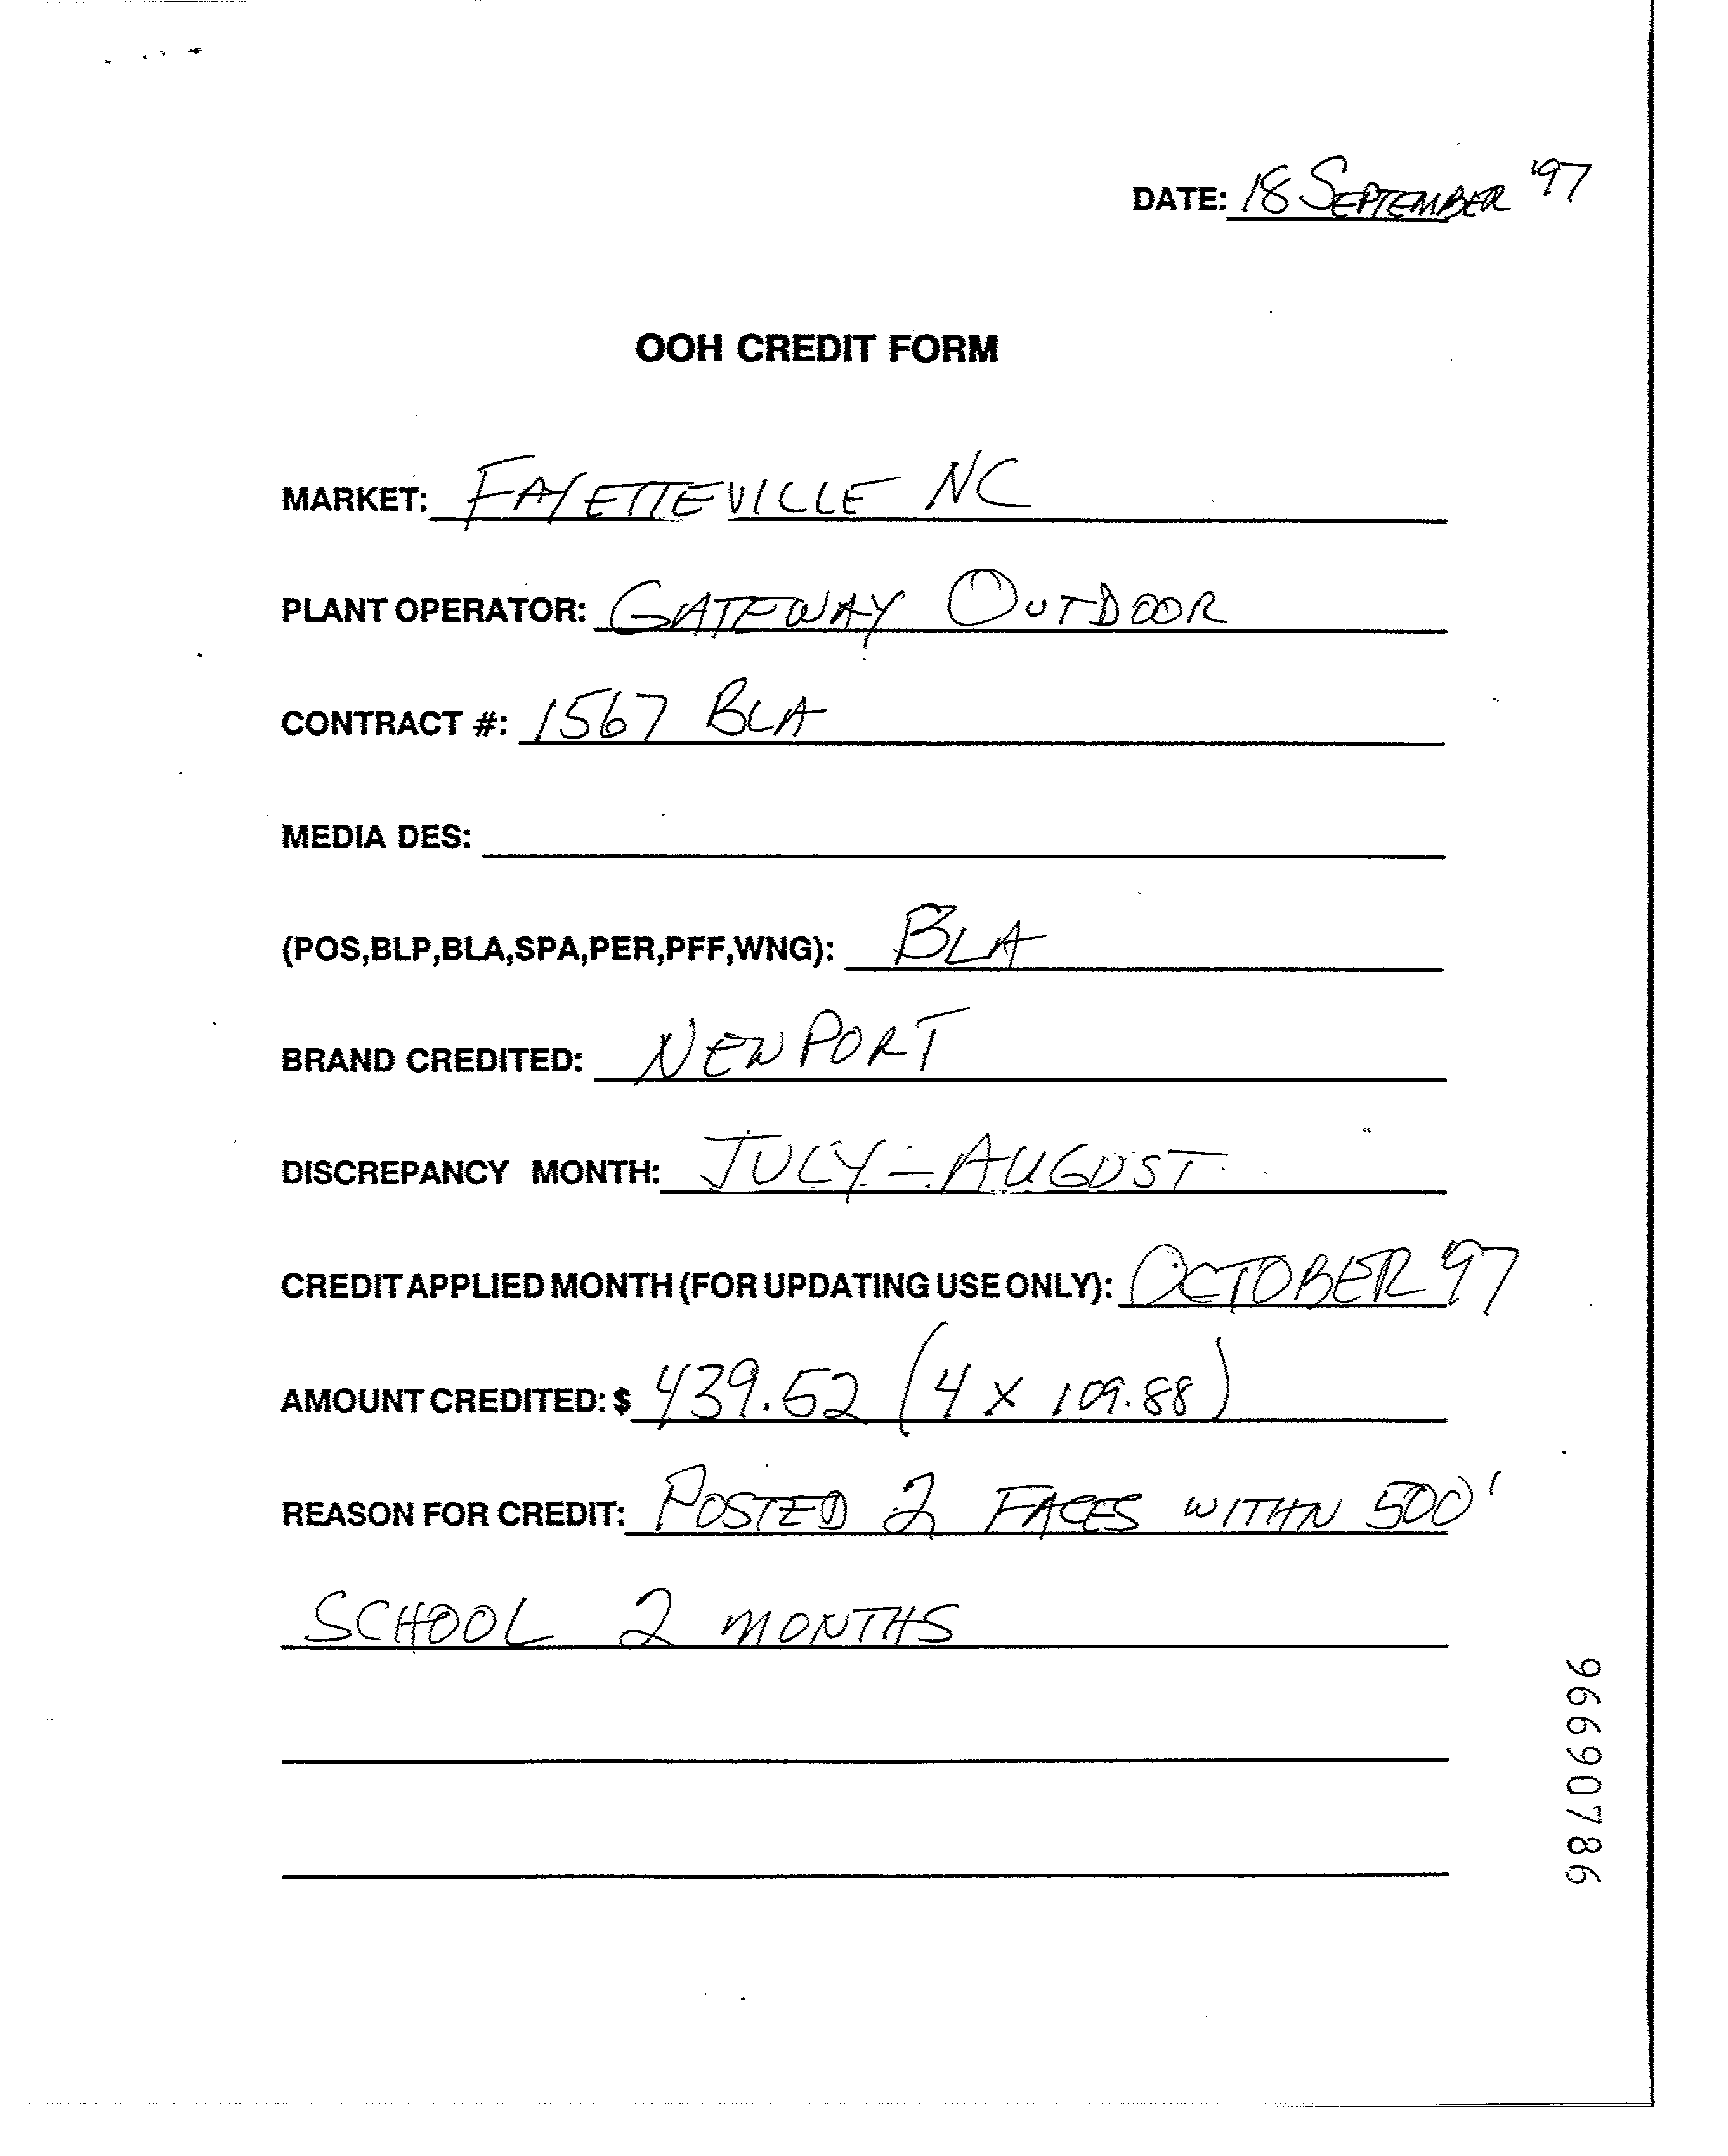 DATE: 18 SEPTEMBER '97
OOH CREDIT FORM
MARKET: FAYETTEVILLE NC
PLANT OPERATOR: GATEWAY OUTDOOR
CONTRACT #: 1567 BLA
MEDIA DES:
(POS,BLP,BLA,SPA,PER,PFF,WNG): BLA
BRAND CREDITED: NEWPORT
DISCREPANCY MONTH: JULY - AUGUST
CREDIT APPLIED MONTH (FOR UPDATING USE ONLY): OCTOBER '97
AMOUNT CREDITED: $ 439.52 (4 x 109.88)
REASON FOR CREDIT: POSTED 2 FACES WITHIN 500'
SCHOOL 2 MONTHS
96690786